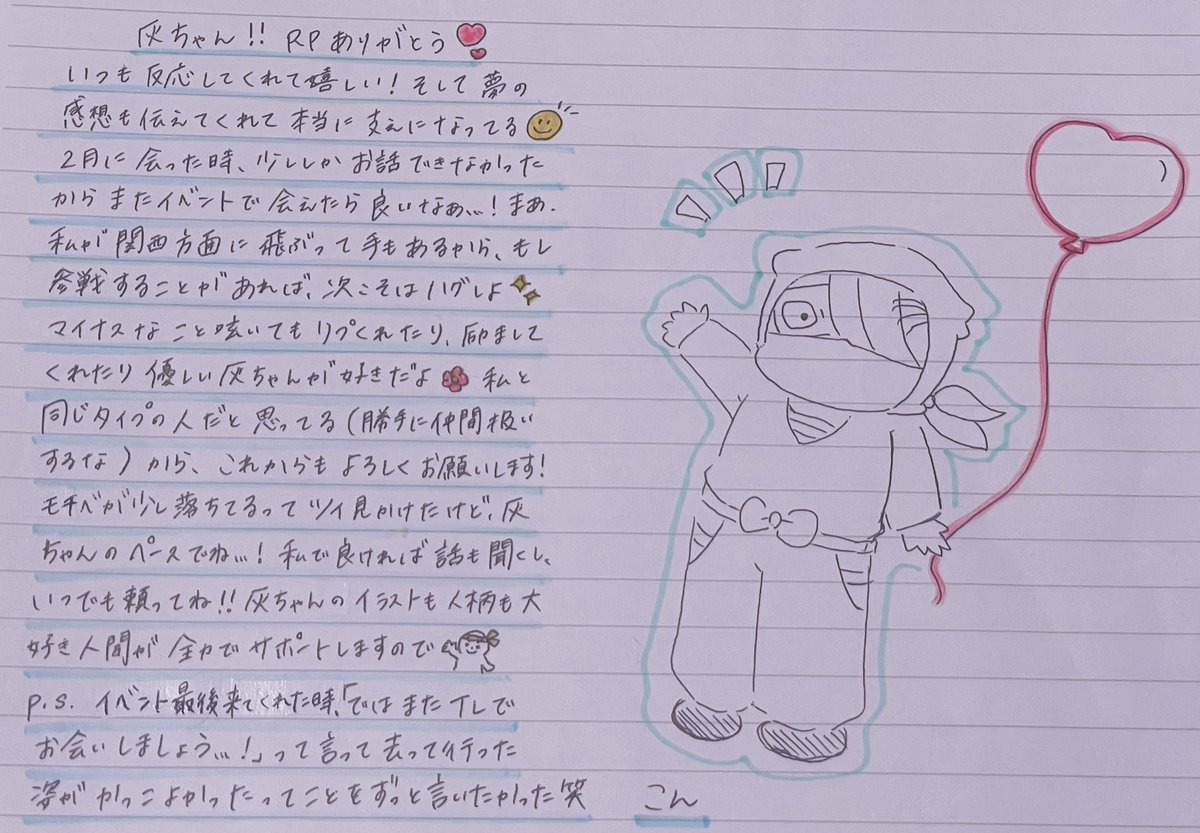 灰ちゃん!! RPありがとう
いつも反応してくれて嬉しい!そして夢の
感想も伝えてくれて本当に支えになってる
2月に会った時、少ししかお話できなかった
からまたイベントで会えたら良いなぁ…!まあ、
私が関西方面に飛ぶって手もあるから、もし
参戦することがあれば、次こそはハグしよ
マイナスなこと呟いてもリプくれたり、励まして
くれたり優しい灰ちゃんが好きだよ 私と
同じタイプの人だと思ってる(勝手に仲間扱い
するな)から、これからもよろしくお願いします!
モチベが少し落ちてるってツイ見かけたけど、灰
ちゃんのペースでね…!私で良ければ話も聞くし、
いつでも頼ってね!!灰ちゃんのイラストも人柄も大
好き人間が全力でサポートしますので
p.s. イベント最後来てくれた時、「ではまたTLで
お会いしましょう…!」って言って去って行った
姿がかっこよかったってことをずっと言いたかった笑
こん